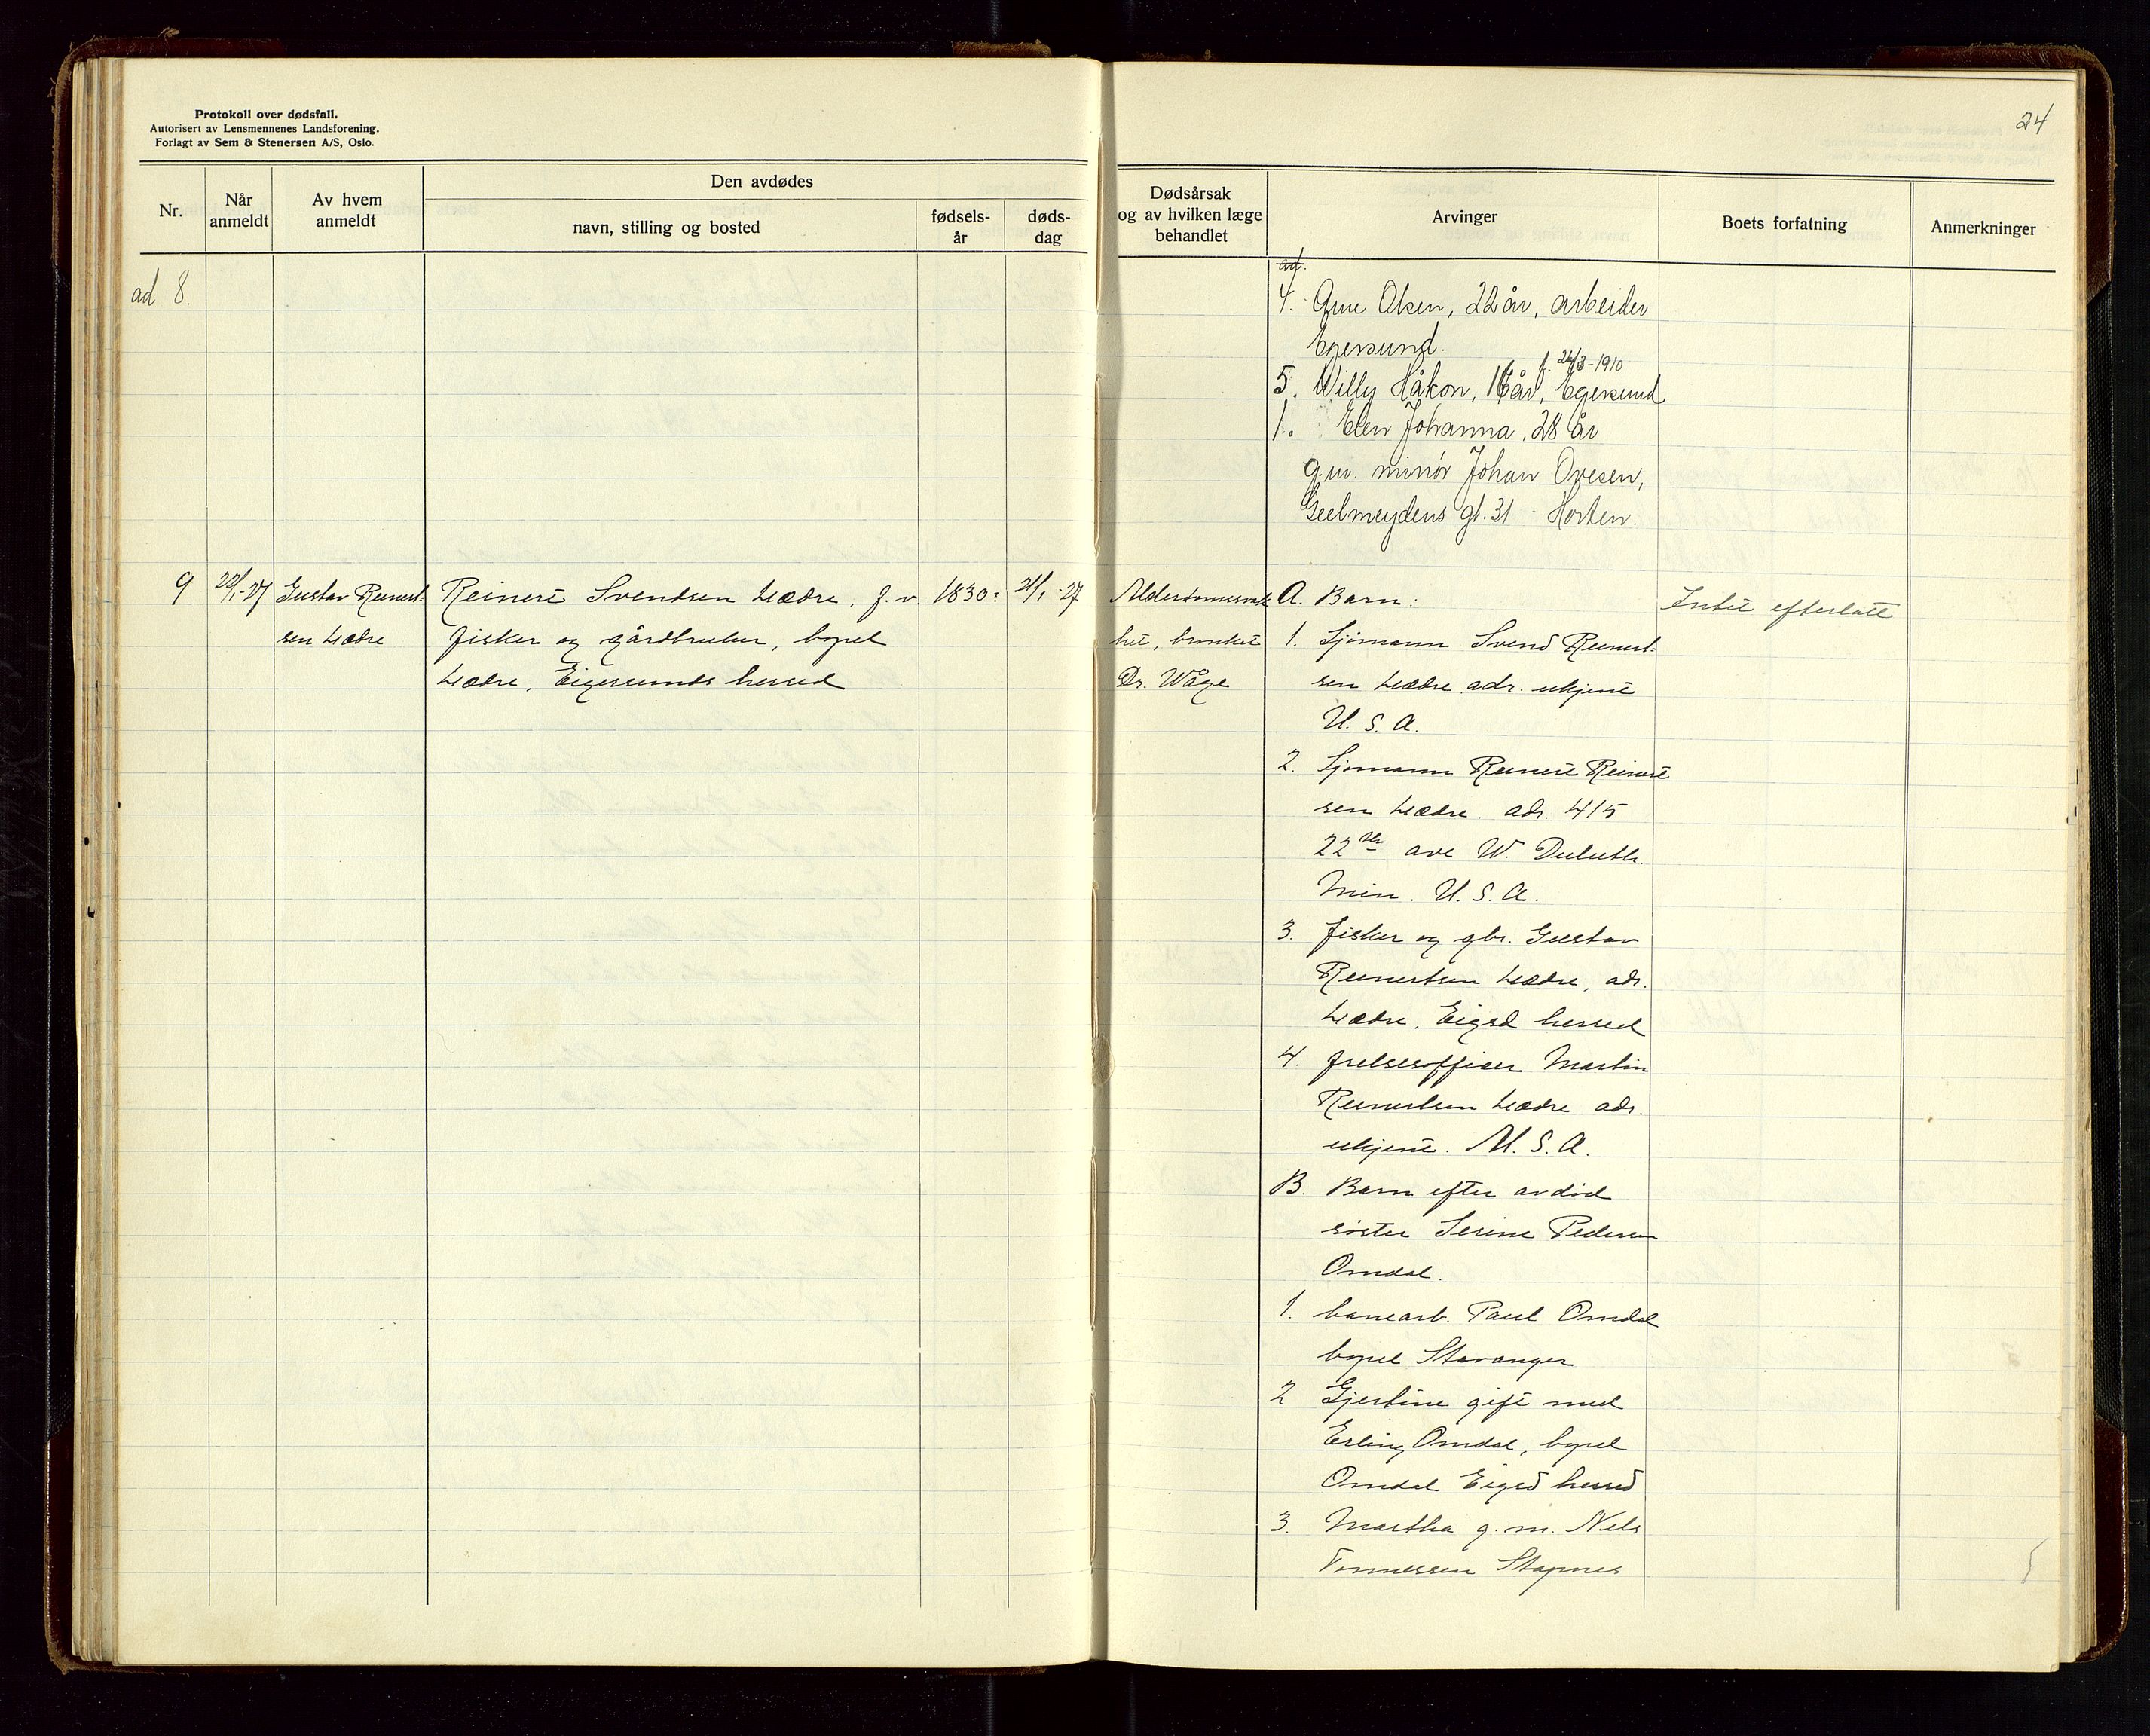 Protokoll over dødsfall.
Autorisert av Lensmennenes Landsforening.
Forlagt av Sem & Stenersen A/S, Oslo.
24
Nr.
Når anmeldt
Av hvem anmeldt
Den avdødes
navn, stilling og bosted
fødsels-år
døds-dag
Dødsårsak og av hvilken læge behandlet
Arvinger
Boets forfatning
Anmerkninger
ad 8.
4. Arne Olsen, 22 år, arbeider
Egersund.
f. 26/3-1910
5. Willy Håkon, 16 år, Egersund
1. Elen Johanna, 28 år
g.m. minør Johan Ovesen,
Geelmeydens gt. 31 Horten.
9
22/1-27
Gustav Reinert-
sen Hædre
Reinert Svendsen Hædre, f.v.
fisker og gårdbruker, bopel
Hædre, Eigersunds herred
1830
21/1-27
Alderdomssvak
het, bronkit
Dr. Wåge
A. Barn:
1. Sjømann Svend Reinert-
sen Hædre adr. ukjent
U.S.A.
2. Sjømann Reinert Reinert
sen Hædre. adr. 415
22th ave W. Duluth.
Min. U.S.A.
3. fisker og gbr. Gustav
Reinertsen Hædre, adr.
Hædre, Eigsd herred
4. frelsesoffiser Martin
Reinertsen Hædre adr.
ukjent. U.S.A.
B. Barn efter avdød
søster Serine Pedersen
Omdal.
1. banearb. Paul Omdal
bopel Stavanger
2 Gjertine gift med
Erling Omdal, bopel
Omdal Eigsd herred
3. Martha g.m. Nils
Tønnessen Stapnes
Intet efterlatt